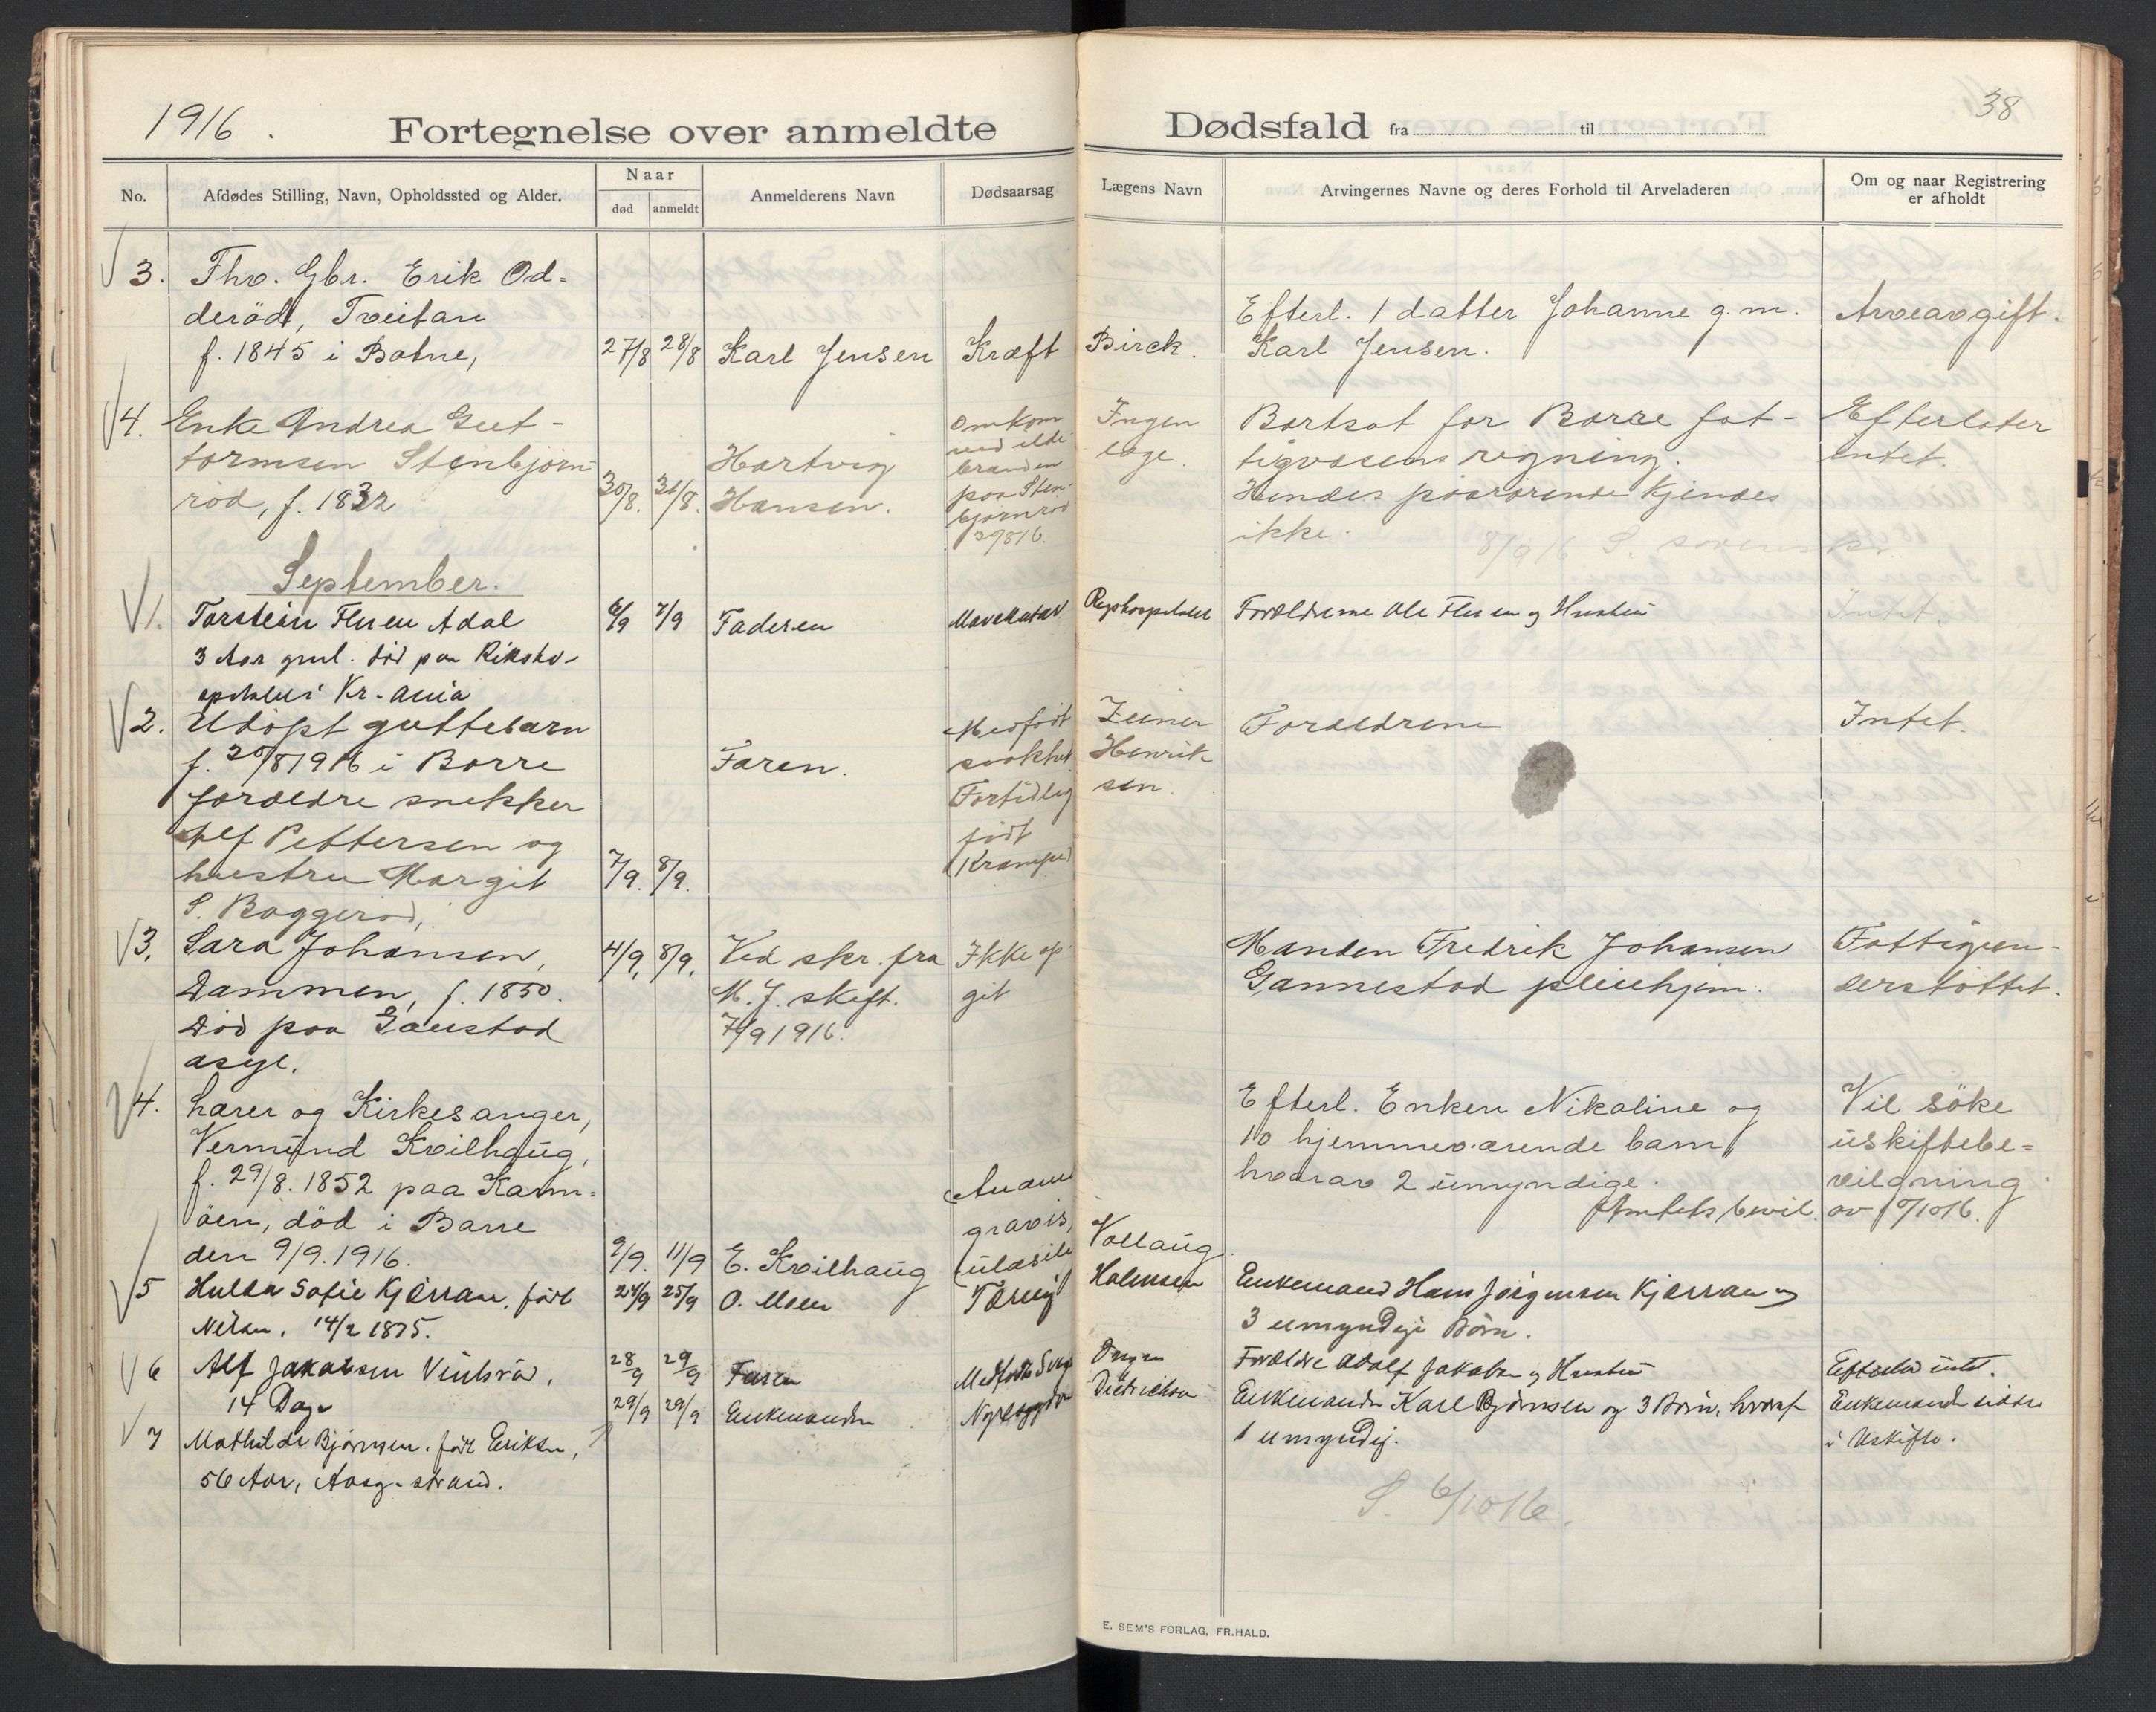 1916.
Fortegnelse over anmeldte
No.
Afdødes Stilling, Navn, Opholdssted og Alder.
Naar
død
anmeldt
Anmelderens Navn
Dødsaarsag
3. Fhv. Gbr. Erik Od=
deröd, Tveitan
f. 1845 i Botne, 27/8 28/8 Karl Jensen Kræft
4. Enke Andrea Gut-
tormsen Stenbjørn-
rød, f. 1832 30/8. 31/8. Hartvig
Hansen.
Omkom
ved ilde
branden
paa Sten-
bjørnrød
29816.
September.
1. Torstein Flusen Adal 6/9 7/9 Faderen Mavekatar
3 Aar gml. död paa Riksho-
spitalet i Kr.ania
2. Udöpt guttebarn
f. 20/8 1916 i Borre
foreldre snekker
Alf Pettersen og
hustru Margit
S. Baggerød, 7/9. 8/9. Faren.
Medfødt
svakhet
Fortidlig
født
(Krampe)
3. Sara Johansen,
Dammen, f. 1850.
Död paa Gaustad
asyl.
4/9. 8/9. Ved skr. fra
M. J. skift.
7/9 1916.
Ikke op-
git
4. Lærer og Kirkesanger,
Vermund Kvilhaug,
f. 29/8. 1852 paa Karm=
öen, död i Borre
den 9/9. 1916. 9/9. 11/9 E. Kvilhaug
gravis,
5 Hulda Sofie Kjærran, född
14/2 1875.
24/9 25/9 O. Moen Tæring
6 Alf Jakobsen
14 Dage
28/9 29/9 Faren
7 Mathilde Bjørnsen, född Eriksen,
56 Aar, Aasg.strand.
29/9 29/9 Enkemanden
38
Dødsfald fra til
Lægens Navn
Arvingernes Navne og deres Forhold til Arveladeren
Om og naar Registrering
er afholdt
Birck.
Efterl. 1 datter Johanne g.m.
Karl Jensen.
Arveavgift.
Ingen
læge.
Bortsat for Borre fat-
tigvæsens regning.
Hendes paarørende kjendes
ikke.
Efterlater
intet.
Rigshospitalet Forældrene Ole Flusen og Hustru
Zeiner
Henrik-
sen.
Foreldrene
Intet.
Manden Fredrik Johansen
Gannestad pleiehjem.
Fattigun-
derstöttet.
Vollaug.
Efterl. Enken Nikoline og
10 hjemmeværende barn,
hvorav 2 umyndige.
Amtets bevil.
Vil söke
uskiftebe=
vilgning
av 10/1016.
Holmsen Enkemand Hans Jørgensen Kjærran og
3 umyndige Børn.
Ingen Forældre Adolf Jakobsen og Hustru Efterlod intet.
Dietrichson Enkemanden Karl Bjørnsen og 3 Børn, hvoraf
1 umyndig.
Enkemanden sidder
i Uskifte.
S. 6/1016.
E. SEM'S FORLAG, FR.HALD.